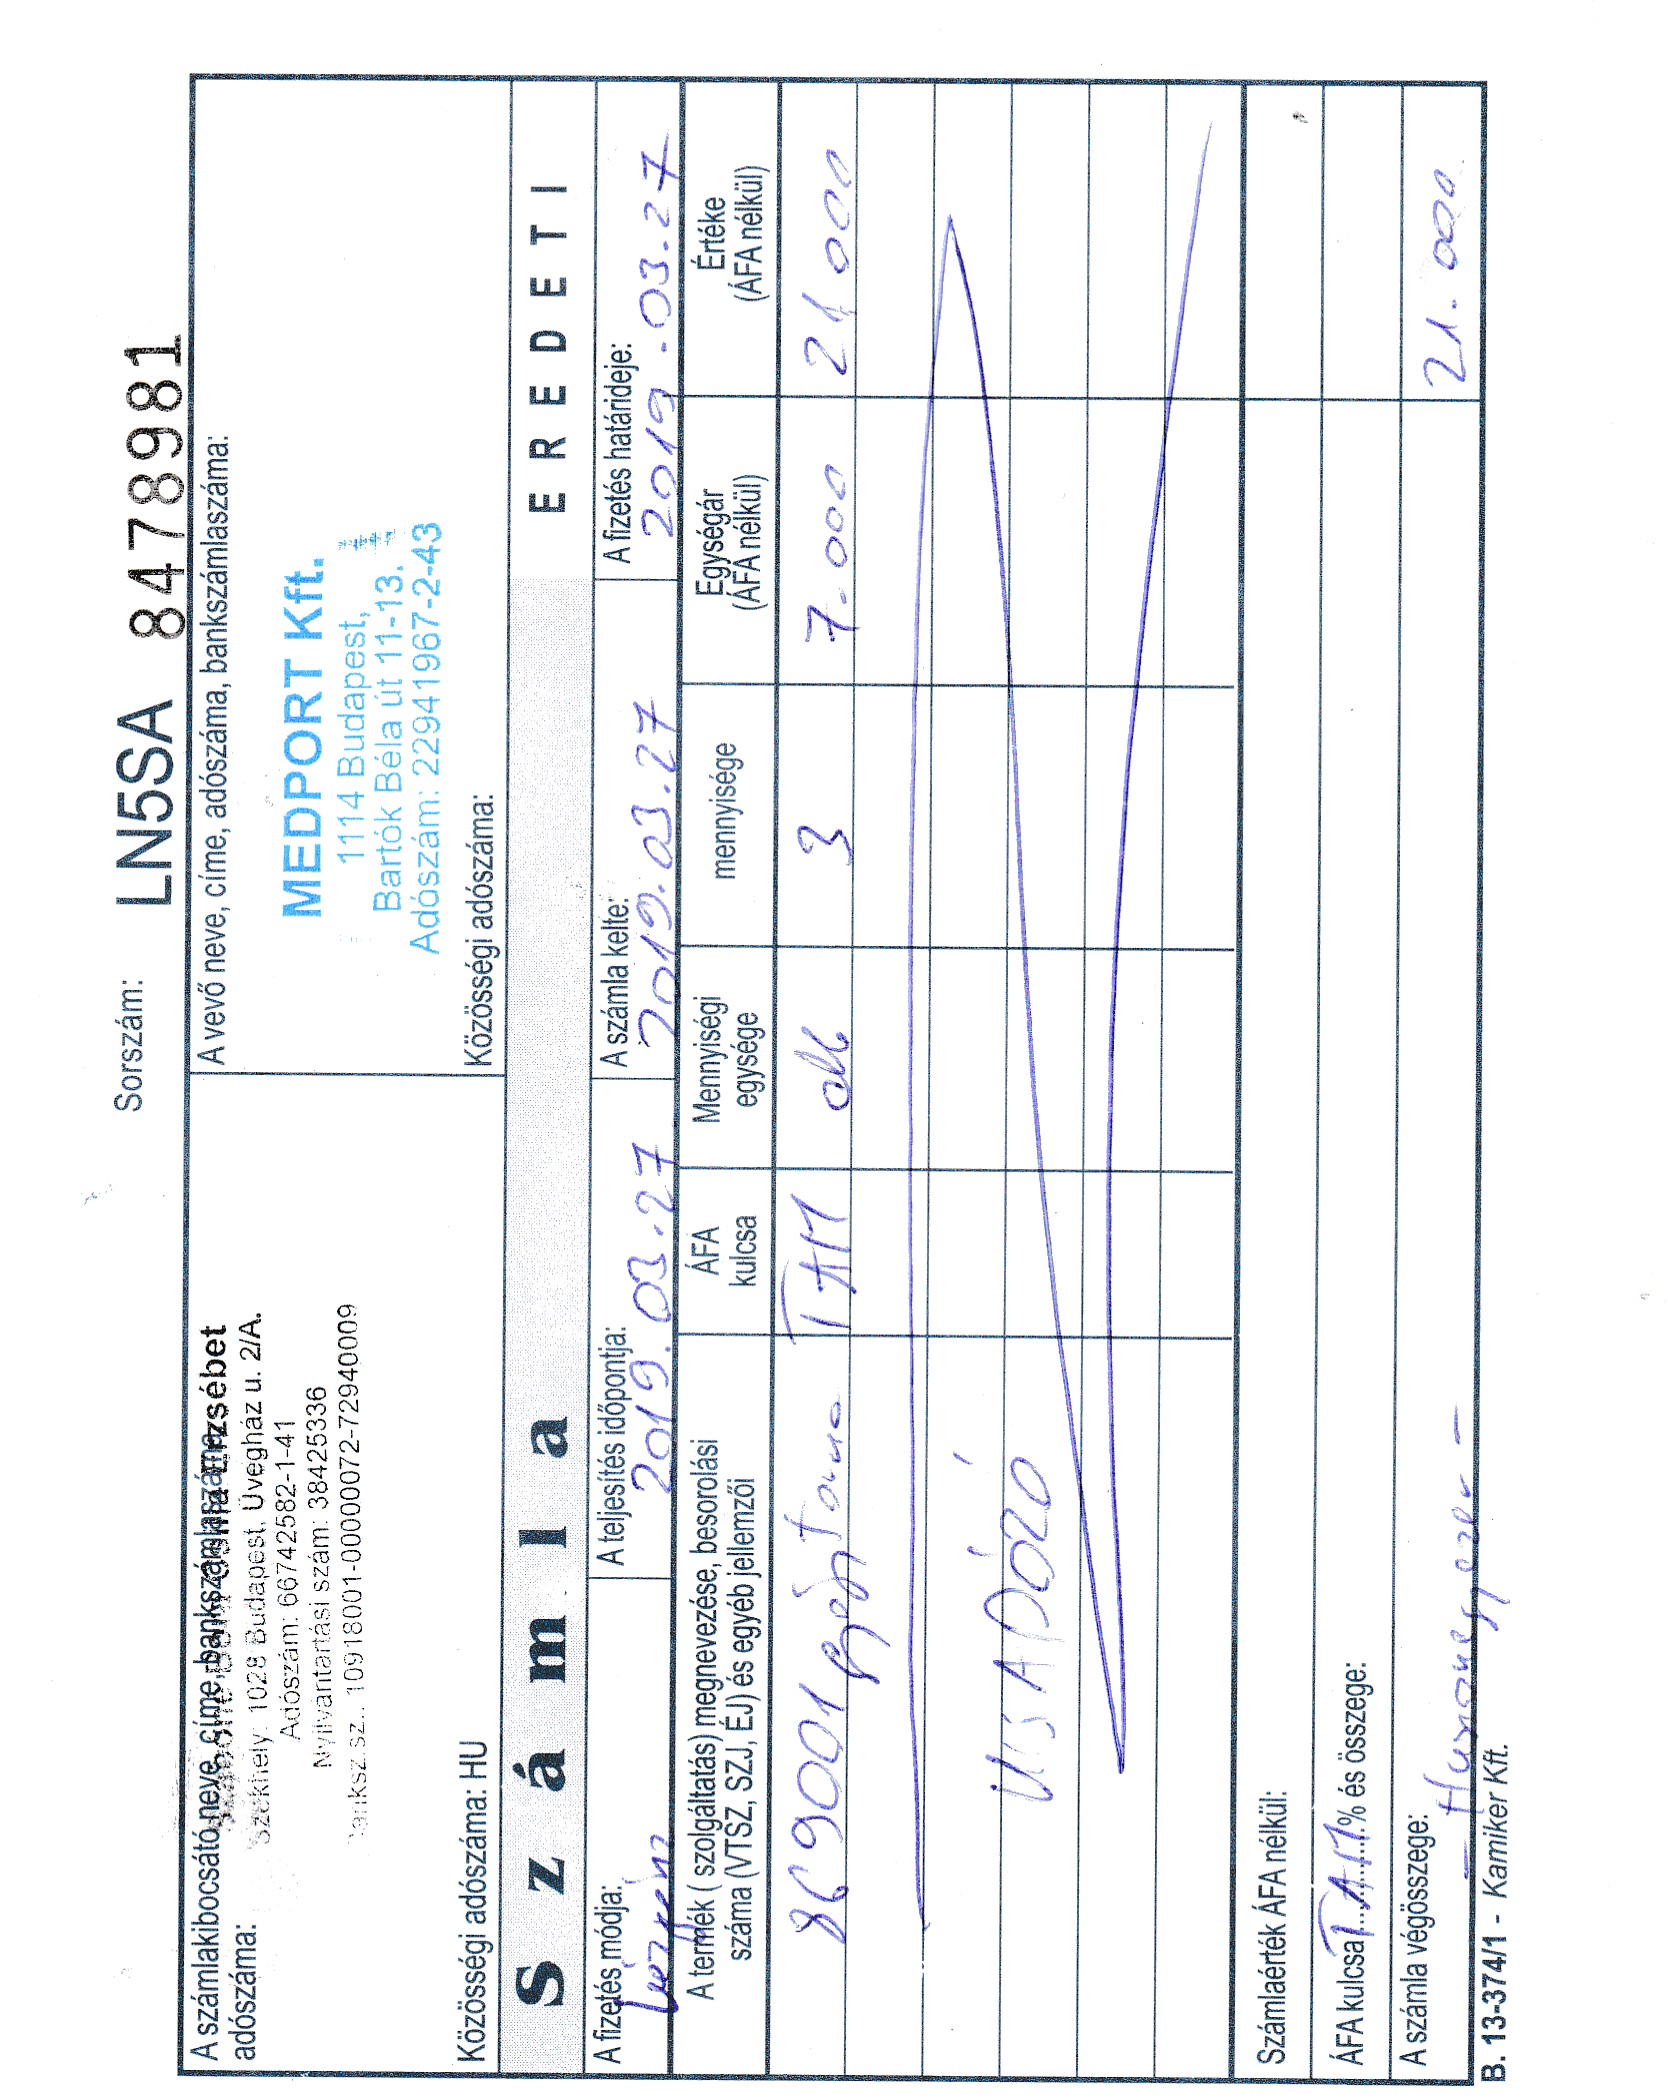 Sorszám: LN5SA 8478981
A számlakibocsátó neve, címe, bankszámlaszáma,
adószáma:
Erzsébet
Székhely: 1028 Budapest, Üvegház u. 2/A.
Adószám: 66742582-1-41
Nyilvántartási szám: 38425336
Banksz.sz.: 10918001-00000072-72940009
Közösségi adószáma: HU
A vevő neve, címe, adószáma, bankszámlaszáma:
MEDPORT Kft.
1114 Budapest,
Bartók Béla út 11-13.
Adószám: 22941967-2-43
Közösségi adószáma:
Számla
EREDETI
A fizetés módja:
A teljesítés időpontja:
2019.03.27
A számla kelte:
2019.03.27
A fizetés határideje:
2019.03.27
A termék ( szolgáltatás) megnevezése, besorolási
száma (VTSZ, SZJ, ÉJ) és egyéb jellemzői
ÁFA
kulcsa
Mennyiségi
egysége
mennyisége
Egységár
(ÁFA nélkül)
Értéke
(ÁFA nélkül)
869001 gyógytorna TAM db 3 7.000 21 000
KISADÓZÓ
Számlaérték ÁFA nélkül:
ÁFA kulcsa TAM % és összege:
A számla végösszege: 21.000
- Huszonegyezer -
B. 13-374/1 - Kamiker Kft.